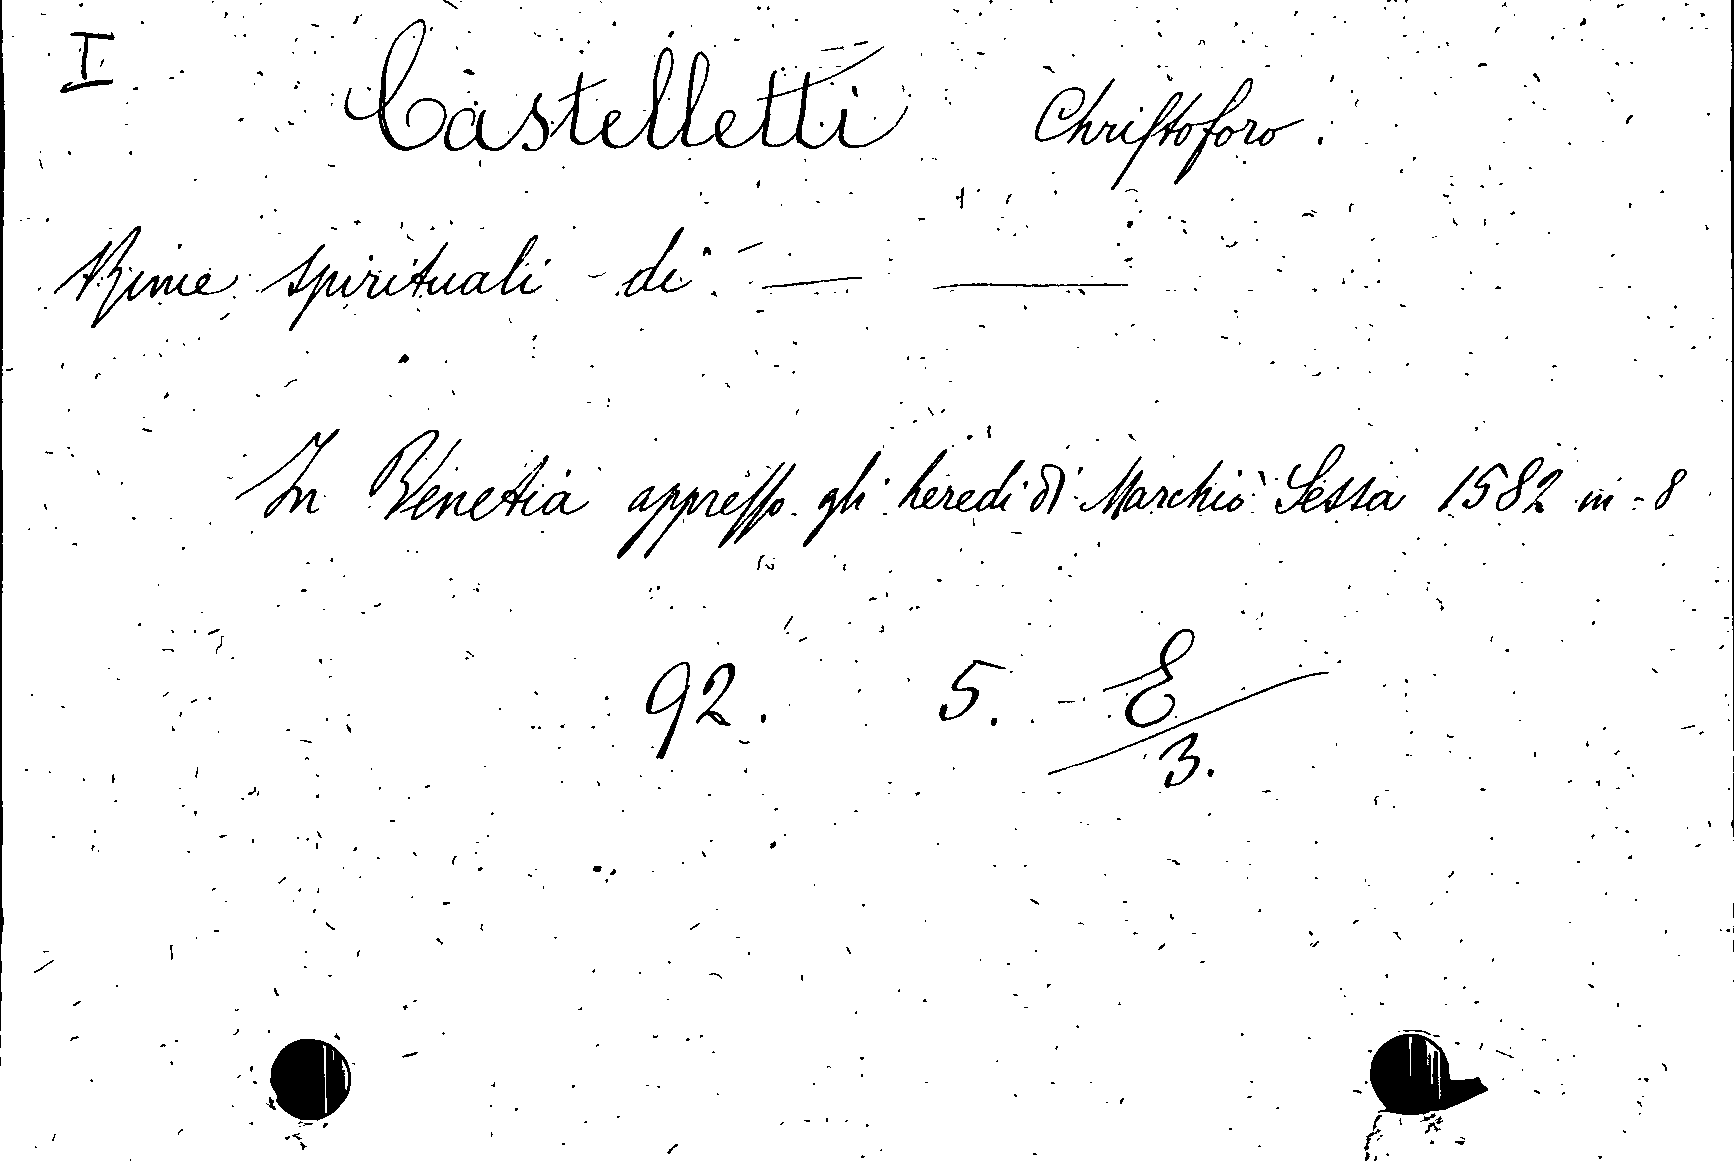 I
Castelletti Chriſtoforo.
Rime spirituali di — —
In Venetia appreſſo gli heredi di Marchiò Sessa 1582 in-8
92. 5. E
3.